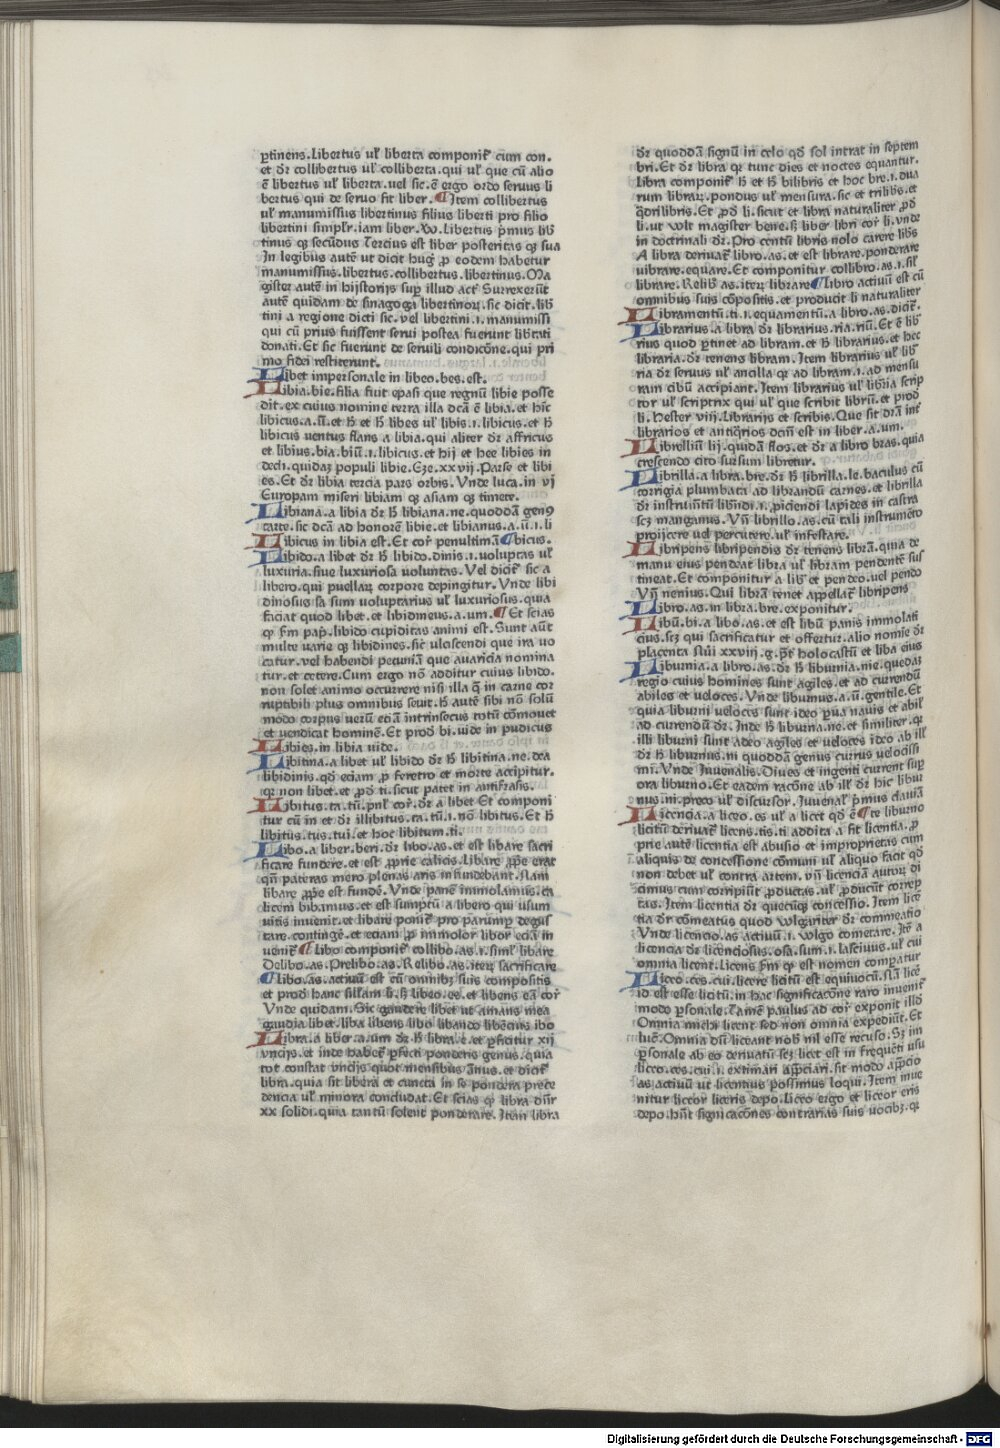 ꝑtinens.Libertus ul̕ liberta componit̕ cum con.
et dr̄ collibertus ul̕ colliberta.qui ul̕ que cū alio
ē libertus ul̕ liberta.uel sic.ē ergo ordo seruus li
bertus qui de seruo fit liber.¶Item collibertus
ul̕ manumissus libertinus filius liberti pro filio
libertini simplr̄.iam liber.Vn̄.Libertus p̄mus lib̄
tinus qꝫ secūdus Tercius est liber posteritas qꝫ sua
In legibus autē ut dicit hug̕ ꝓ eodem habetur
manumissus.libertus.collibertus.libertinus.Ma
gister autē in hijstorijs sup̱ illud act̕ Surrexerūt
autē quidam de sinagoga libertinoꝝ.sic dicit.lib̄
tini a regione dicti sic.vel libertini.i.manumissi
qui cū prius fuissent serui postea fuerunt lib̄tati
donati.Et sic fuerunt de seruili condicōne.qui pri
mo fidei restiterunt.
Libet impersonale in libeo.bes.est.
Libia.bie.filia fuit epasi que regnū libie posse
dit.ex cuius nomine terra illa dcā ē libia.et hic
libicus.a.ū.et h̄ et h̄ libes ul̕ libis.i.libicus.et h̄
libicus uentus flans a libia.qui aliter dr̄ affricus
et libius.bia.biū.i.libicus.et hij et hee libies in
decli.quidaꝫ populi libie.Eze.xxvij.Parse et libi
es.Et dr̄ libia tercia pars orbis.Vnde luca.in vj
Europam miseri libiam qꝫ asiam qꝫ timete.
Libiana.a libia dr̄ h̄ libiana.ne.quoddā genꝰ
carte.sic dcā ad honorē libie.et libianus.a.ū.i.li
Libicus in libia est.Et cor̄ penultimā ¶bicus.
Libido.a libet dr̄ h̄ libido.dinis.i.voluptas ul̕
luxuria.siue luxuriosa voluntas.Vel dicit̕ sic a
libero.qui puellaꝝ corpore depingitur.Vnde libi
dinosus sa sum voluptarius ul̕ luxuriosus.quia
faciat quod libet.et libidineus.a.um.¶Et scias
ꝙ s̄m pap̄.libido cupiditas animi est.Sunt aūt
multe varie qꝫ libidines.sic̄ ulciscendi que ira uo
catur.vel habendi pecuniā que auaricia nomina
tur.et cetere.Cum ergo nō additur cuius libido.
non solet animo occurrere nisi illa q̄ in carne cor
ruptibili plus omnibus seuit.h̄ autē sibi nō solū
modo corpus uerū eciā intrinsecus totū cōmouet
et vendicat hominē.Et prod̄ bi.uide in pudicus
Libies.in libia uide.
Libitina.a libet ul̕ libido dr̄ h̄ libitina.ne.dea
libidinis.qd̄ eciam ꝓ feretro et morte accipitur.
qꝛ non libet.et ꝓd̄ ti.sicut patet in antifrasis.
Libitus.ta.tū.pnl̕ cor̄.dr̄ a libet Et componi
tur cū in et dr̄ illibitus.ta.tū.i.nō libitus.Et h̄
libitus.tus.tui.et hoc libitum.ti.
Libo.a liber.beri.dr̄ libo.as.et est libare sacri
ficare fundere.et est ꝓprie calicis.Libare ꝓpe erat
qn̄ pateras mero plenas aris infundebant.Nam
libare ꝓpe est fundē.Vnde panē immolamus.ca
licem bibamus.et est sumptū a libero qui usum
uitis inuenit.et libare ponit̕ pro parumꝑ degus
tare.contingē.et eciam ꝓ immolor libor eciā in
uenit̕ ¶Libo componit̕ collibo.as.i.simul̕ libare
Delibo.as.Prelibo.as.Relibo.as.iterꝫ sacrificare
¶Libo.as.actiuū est cū omnibꝫ suis compositis
et prod̄ hanc sillam li.sꝫ libeo.es.et libens eā cor̄
Vnde quidam.Sic gaudere libet ut amans mea
gaudia libet.liba libens libo libando libecius ibo
Libra.a liber.a.um dr̄ h̄ libra.e.et ꝑficitur xij
vncijs.et inde habet̕ ꝑfecti ponderis genus.quia
tot constat vncijs quot mensibus ānus.et dicit̕
libra.quia sit libera et cuncta in se pondera prece
dencia ul̕ minora concludat.Et scias ꝙ libra dn̄r
xx solidi.quia tantū solent ponderare.Item libra
dr̄ quoddā signū in celo qd̄ sol intrat in septem
bri.Et dr̄ libra qꝛ tunc dies et noctes equantur.
Libra componit̕ h̄ et h̄ bilibris et hoc bre.i.dua
rum libraꝝ.pondus ul̕ mensura.sic et trilib̄s.et
q̄drilibris.Et ꝓd̄ li.sicut et libra naturaliter ꝓd̄
li.ut wlt magister bene.sꝫ liber libri cor̄ li.vnde
in doctrinali dr̄.Pro centū libris nolo carere lib̄s
A libra deriuat̕ libro.as.et est librare.ponderare
uibrare.equare.Et componitur collibro.as.i.sil̕
librare.Relib̄.as.iterꝫ librare ¶Libro actiuū est cū
omnibus suis cōpositis.et producit li naturaliter
Libramentū.ti.i.equamentū.a libro.as.dicit̕.
Librarius.a libra dr̄ librarius.ria.riū.Et ē lib̄
rius quod ꝑtinet ad libram.et h̄ librarius.et hec
libraria.dr̄ tenens libram.Item librarius ul̕ lib̄
ria dr̄ seruus ul̕ ancilla qꝛ ad libram.i.ad mensu
ram cibū accipiant.Item librarius ul̕ lib̄ria scrip
tor ul̕ scriptrix qui ul̕ que scribit librū.et prod̄
li.Hester viij.Librarijs et scribis.Que sit dr̄ā int̕
librarios et antiq̄rios dcm̄ est in liber.a.um.
Librellū lij.quidā flos.et dr̄ a libro bras.quia
crescendo cito sursum libretur.
Librilla.a libra.bre.dr̄ h̄ librilla.le.baculus cū
corrigia plumbata ad librandū carnes.et librilla
dr̄ instrum̄tū lib̄ndi.i.ꝓiciendi lapides in castra
scꝫ manganus.Vn̄ librillo.as.cū tali instrumēto
proijcere uel percutere ul̕ infestare.
Libripens libripendis dr̄ tenens librā.quia de
manu eius pendeat libra ul̕ libram pendentē sus
tineat.Et componitur a lib̄ et pendeo.uel pendo
Vn̄ nenius.Qui librā tenet appellat̕ libripens
Libro.as.in libra.bre.exponitur.
Libū.bi.a libo.as.et est libū panis immolati
cius.scꝫ qui sacrificatur et offertur.alio nomīe dr̄
placenta nūi xxviij.g.p̄t holocastū et liba eius
Liburnia.a libro.as.dr̄ h̄ liburnia.nie.quedaꝫ
regio cuius homines sunt agiles.et ad currendū
abiles et veloces.Vnde liburnus.a.ū.gentile.Et
quia liburni veloces sunt ideo ꝑua nauis et abil̕
ad currendū dr̄.Inde h̄ liburna.ne.et similiter.qꝛ
illi liburni sunt adeo agiles et veloces ideo ab ill̕
dr̄ h̄ liburnus.ni quoddā genus currus velocissi
mi.Vnde Juuenalis.Diues et ingenti current sup̱
ora liburno.Et eadem racōne ab ill̕ dr̄ hic libur
nus.ni.preco ul̕ discursor.Juuenal̕ p̄mus clauiā
Licencia.a liceo.es ul̕ a licet qd̄ ē ¶te liburno
licitū deriuat̕ licens.tis.ti addita a fit licentia.ꝓ
prie autē licentia est abusio et improprietas cum
aliquis de concessione cōmuni ul̕ aliquo facit qd̄
non debet ul̕ contra artem.vn̄ licenciā autoꝝ di
cimus cum corripiūt ꝓductas.ul̕ ꝓducūt correp
tas.Item licentia dr̄ quecūqꝫ concessio.Item licē
tia dr̄ cōmeatus quod wlgariter dr̄ commeatio
Vnde licencio.as actiuū.i.wlgo cometare.Itē a
licencia dr̄ licenciosus.osa.sum.i.lasciuus.ul̕ cui
omnia licent.Licens s̄m ꝙ est nomen comꝑatur
Liceo.ces.cui.licere licitū est equiuocū.Nā licē
id est esse licitū.in hac significacōne raro inuenit̕
modo ꝑsonale.Tamē paulus ad cor̄ exponit illd̄
Omnia michi licent sed non omnia expediūt.Et
lucē.Omnia dū liceant nob̄ nil esse recuso.Sꝫ im
ꝑsonale ab eo deriuatū scꝫ licet est in frequēti usu
liceo.ces.cui.i.extimari app̄ciari.sit modo app̄cio
as actiuū ut licentius possimus loqui.Item inue
nitur liceor liceris depo.Liceo ergo et liceor eris
depo.hn̄t significacōnes contrarias suis uocibꝫ.qꝛ
Digitalisierung gefördert durch die Deutsche Forschungsgemeinschaft - DFG